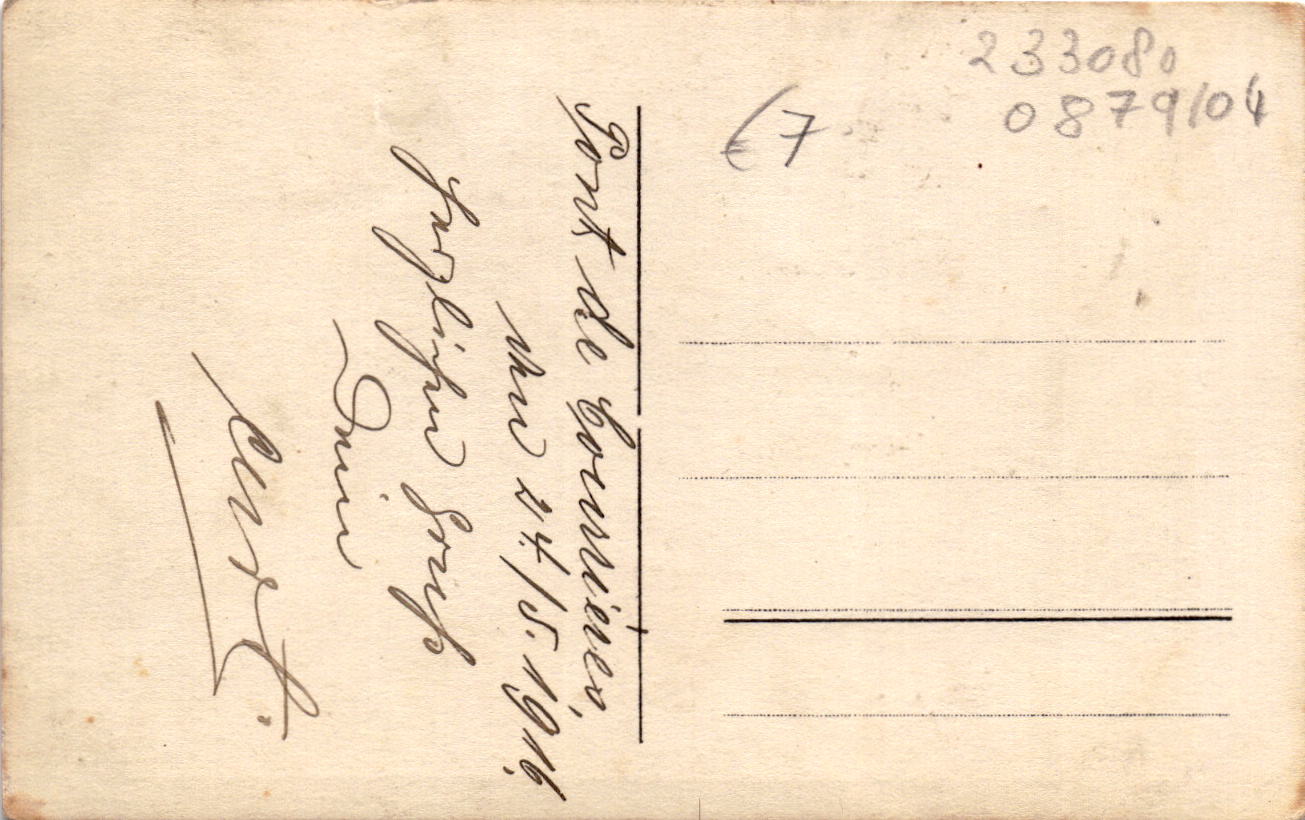 233080
0879/04
€7
Pont de Couvières,
den 24/5.1916.
Herzlichen Gruß
Dein
Curt.